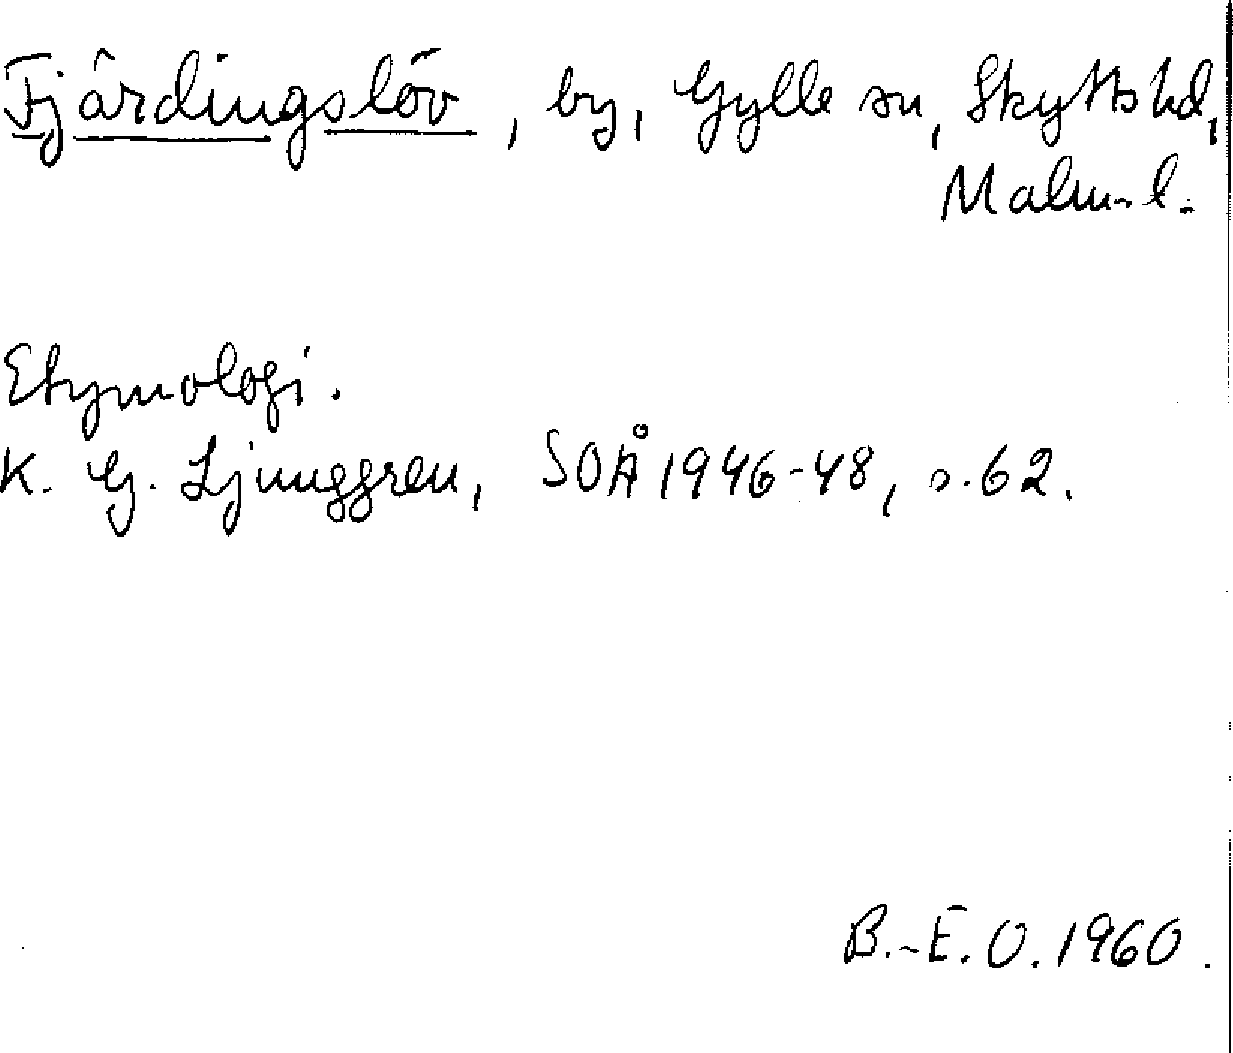 Fjärdingslöv, by, Gylle sn, Skytts hd,
Malm.l.
Etymologi.
K. G. Ljunggren, SOÅ 1946-48, s. 62.
B.-E. O. 1960.